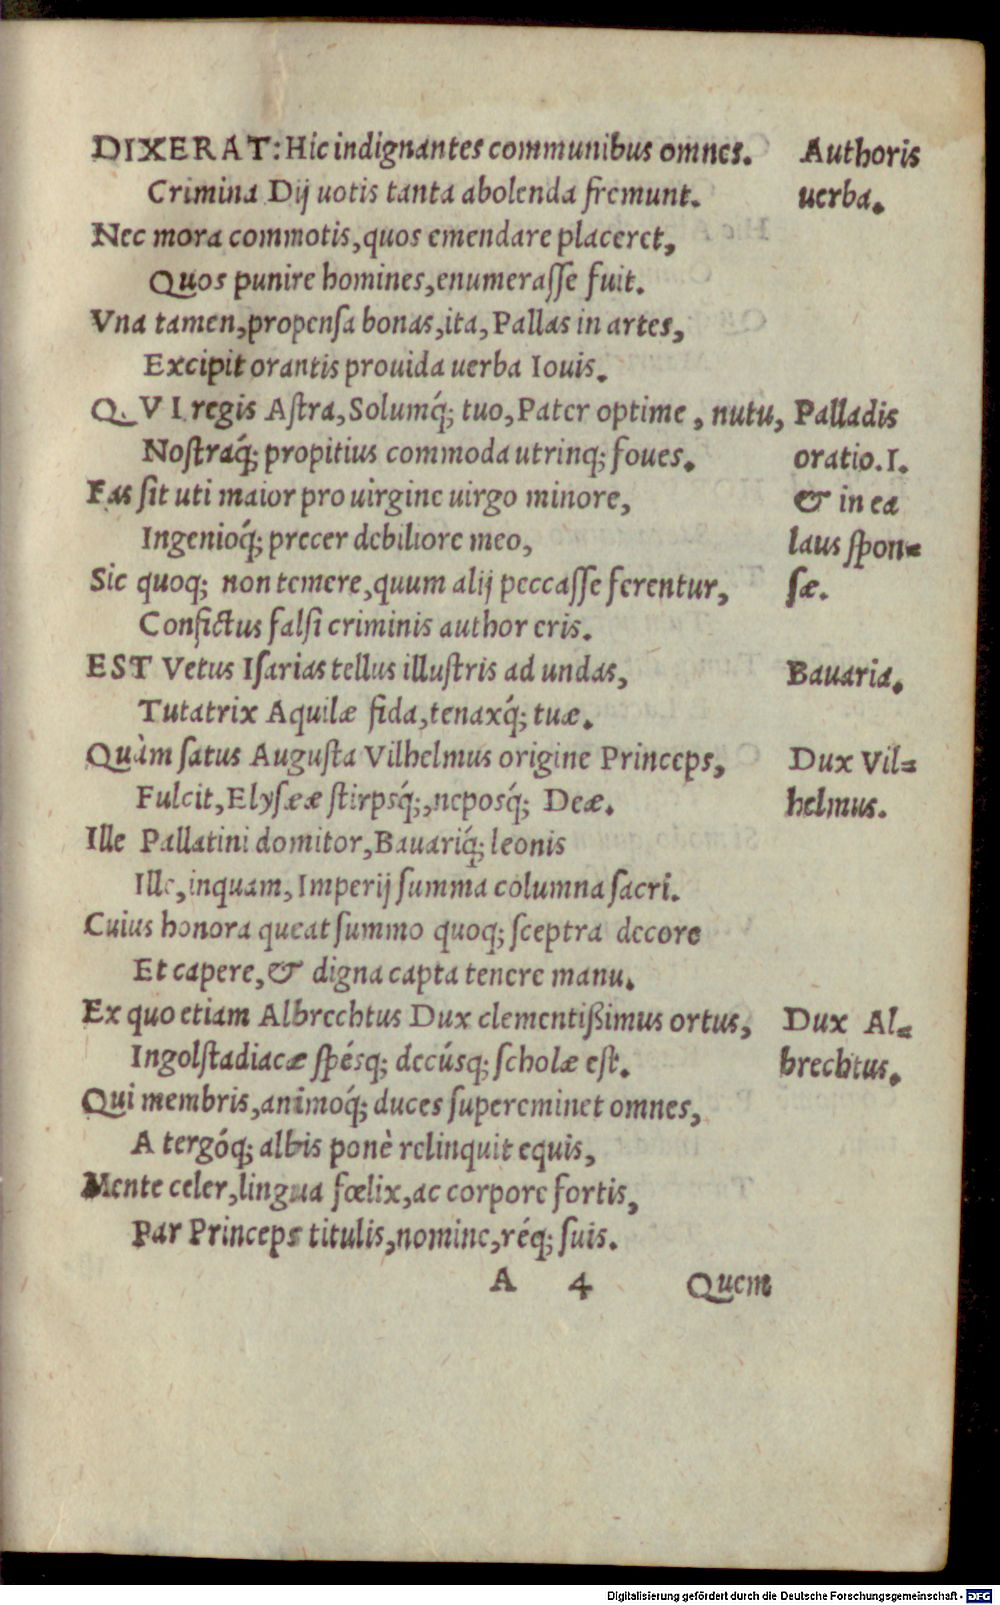 DIXERAT: Hic indignantes communibus omnes. Authoris
Crimina Dij uotis tanta abolenda fremunt. uerba.
Nec mora commotis, quos emendare placeret,
Quos punire homines, enumeraſſe fuit.
Vna tamen, propenſa bonas, ita, Pallas in artes,
Excipit orantis prouida uerba Iouis.
QVI regis Aſtra, Solumq́; tuo, Pater optime, nutu, Palladis
Noſtraq́; propitius commoda utrinq; foues. oratio. I.
Fas ſit uti maior pro uirgine uirgo minore, & in ea
Ingenioq́; precer debiliore meo, laus ſpon=
Sic quoq; non temere, quum alij peccaſſe ferentur, ſæ.
Confictus falſi criminis author eris.
EST Vetus Iſarias tellus illuſtris ad undas, Bauaria.
Tutatrix Aquilæ fida, tenaxq́; tuæ.
Quàm ſatus Auguſta Vilhelmus origine Princeps, Dux Vil=
Fulcit, Elyſææ ſtirpsq́;, neposq́; Deæ. helmus.
Ille Pallatini domitor, Bauariq́; leonis
Ille, inquam, Imperij ſumma columna ſacri.
Cuius honora queat ſummo quoq; ſceptra decore
Et capere, & digna capta tenere manu.
Ex quo etiam Albrechtus Dux clementißimus ortus, Dux Al=
Ingolſtadiacæ ſpésq; decúsq; ſcholæ eſt. brechtus.
Qui membris, animoq́; duces ſupereminet omnes,
A tergóq; albis ponè relinquit equis,
Mente celer, lingua fœlix, ac corpore fortis,
Par Princeps titulis, nomine, réq; ſuis.
A 4 Quem
Digitalisierung gefördert durch die Deutsche Forschungsgemeinschaft - DFG